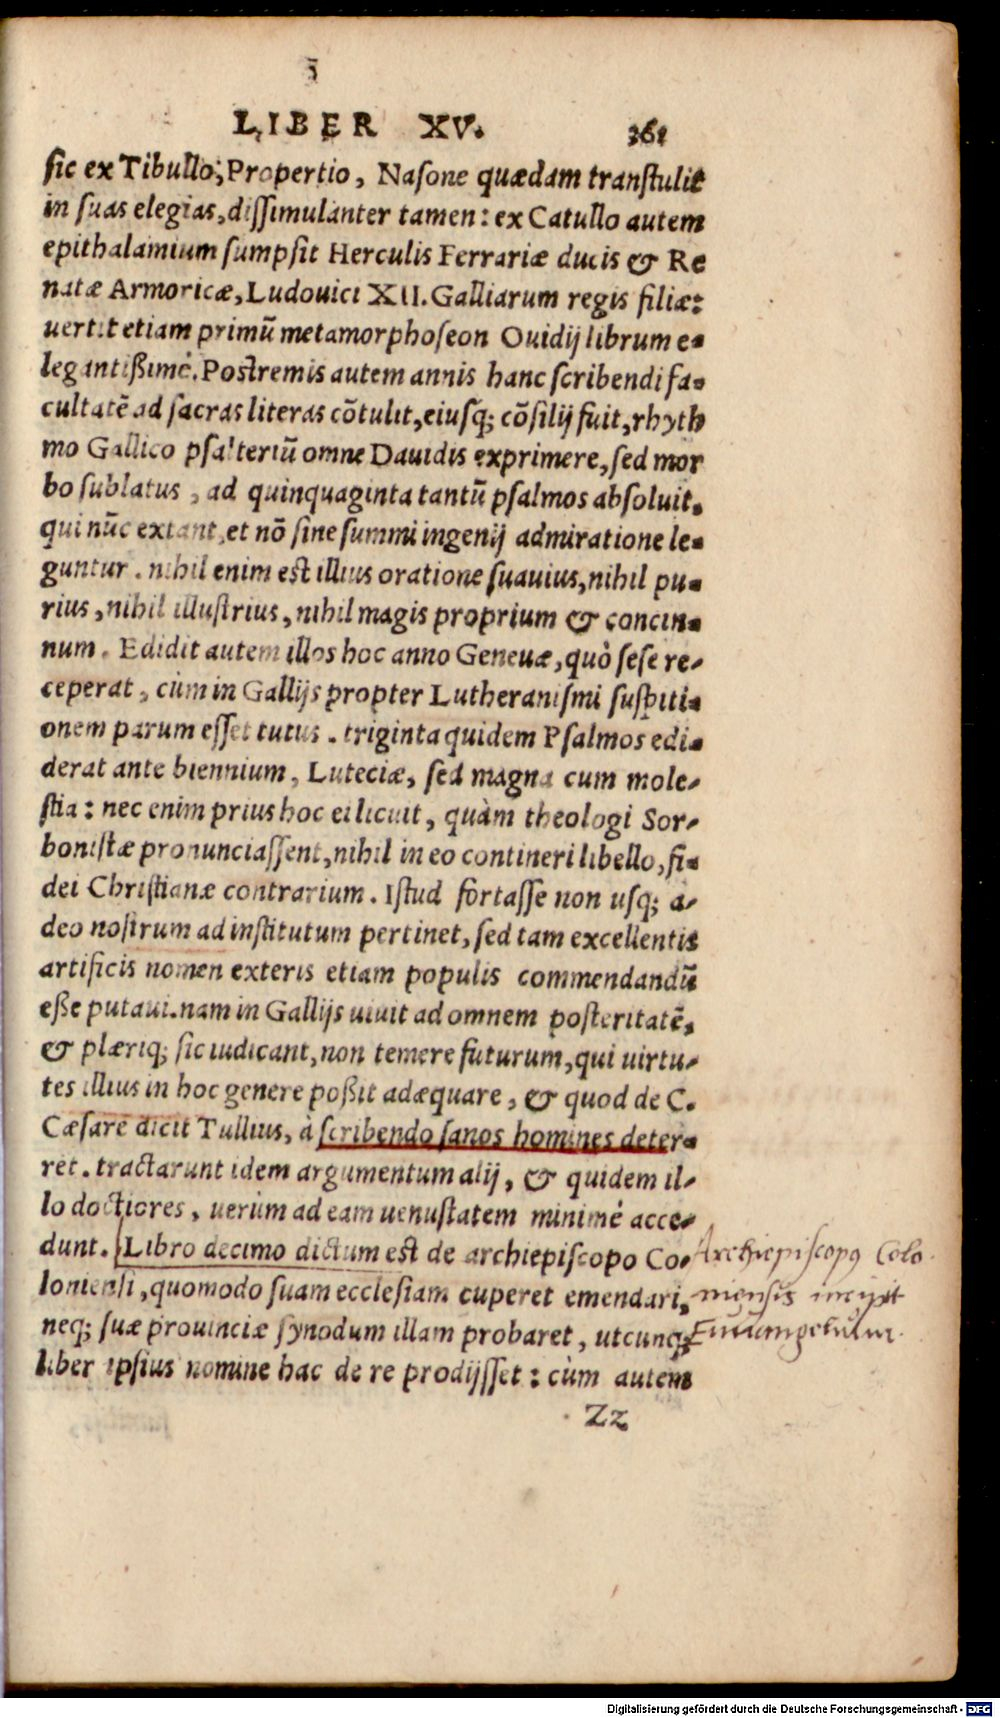 LIBER XV. 361
sic ex Tibullo, Propertio, Nasone quædam transtulit
in suas elegias, dissimulanter tamen: ex Catullo autem
epithalamium sumpsit Herculis Ferrariæ ducis & Re
natæ Armoricæ, Ludouici XII. Galliarum regis filiæ:
uertit etiam primũ metamorphoseon Ouidij librum e-
legantißimè. Postremis autem annis hanc scribendi fa-
cultatẽ ad sacras literas cõtulit, eiusq; cõsilij fuit, rhyth
mo Gallico psalteriũ omne Dauidis exprimere, sed mor
bo sublatus, ad quinquaginta tantũ psalmos absoluit.
qui nũc extant, et nõ sine summi ingenij admiratione le-
guntur. nihil enim est illius oratione suauius, nihil pu-
rius, nihil illustrius, nihil magis proprium & concin-
num. Edidit autem illos hoc anno Geneuæ, quò sese re-
ceperat, cùm in Gallijs propter Lutheranismi suspiti-
onem parum esset tutus. triginta quidem Psalmos edi-
derat ante biennium, Luteciæ, sed magna cum mole-
stia: nec enim prius hoc ei licuit, quàm theologi Sor-
bonistæ pronunciassent, nihil in eo contineri libello, fi-
dei Christianæ contrarium. Istud fortasse non usq; a-
deo nostrum ad institutum pertinet, sed tam excellentis
artificis nomen exteris etiam populis commendandũ
eße putaui. nam in Gallijs uiuit ad omnem posteritatẽ,
& plæriq; sic iudicant, non temere futurum, qui uirtu-
tes illius in hoc genere poßit adæquare, & quod de C.
Cæsare dicit Tullius, à scribendo sanos homines deter-
ret. tractarunt idem argumentum alij, & quidem il-
lo doctiores, uerùm ad eam uenustatem minimè acce-
dunt. Libro decimo dictum est de archiepiscopo Co-
loniensi, quomodo suam ecclesiam cuperet emendari,
neq; suæ prouinciæ synodum illam probaret, utcunq;
liber ipsius nomine hac de re prodijsset: cùm autem
Zz
Archiepiscopus Colo
niensis incipit
Digitalisierung gefördert durch die Deutsche Forschungsgemeinschaft - DFG